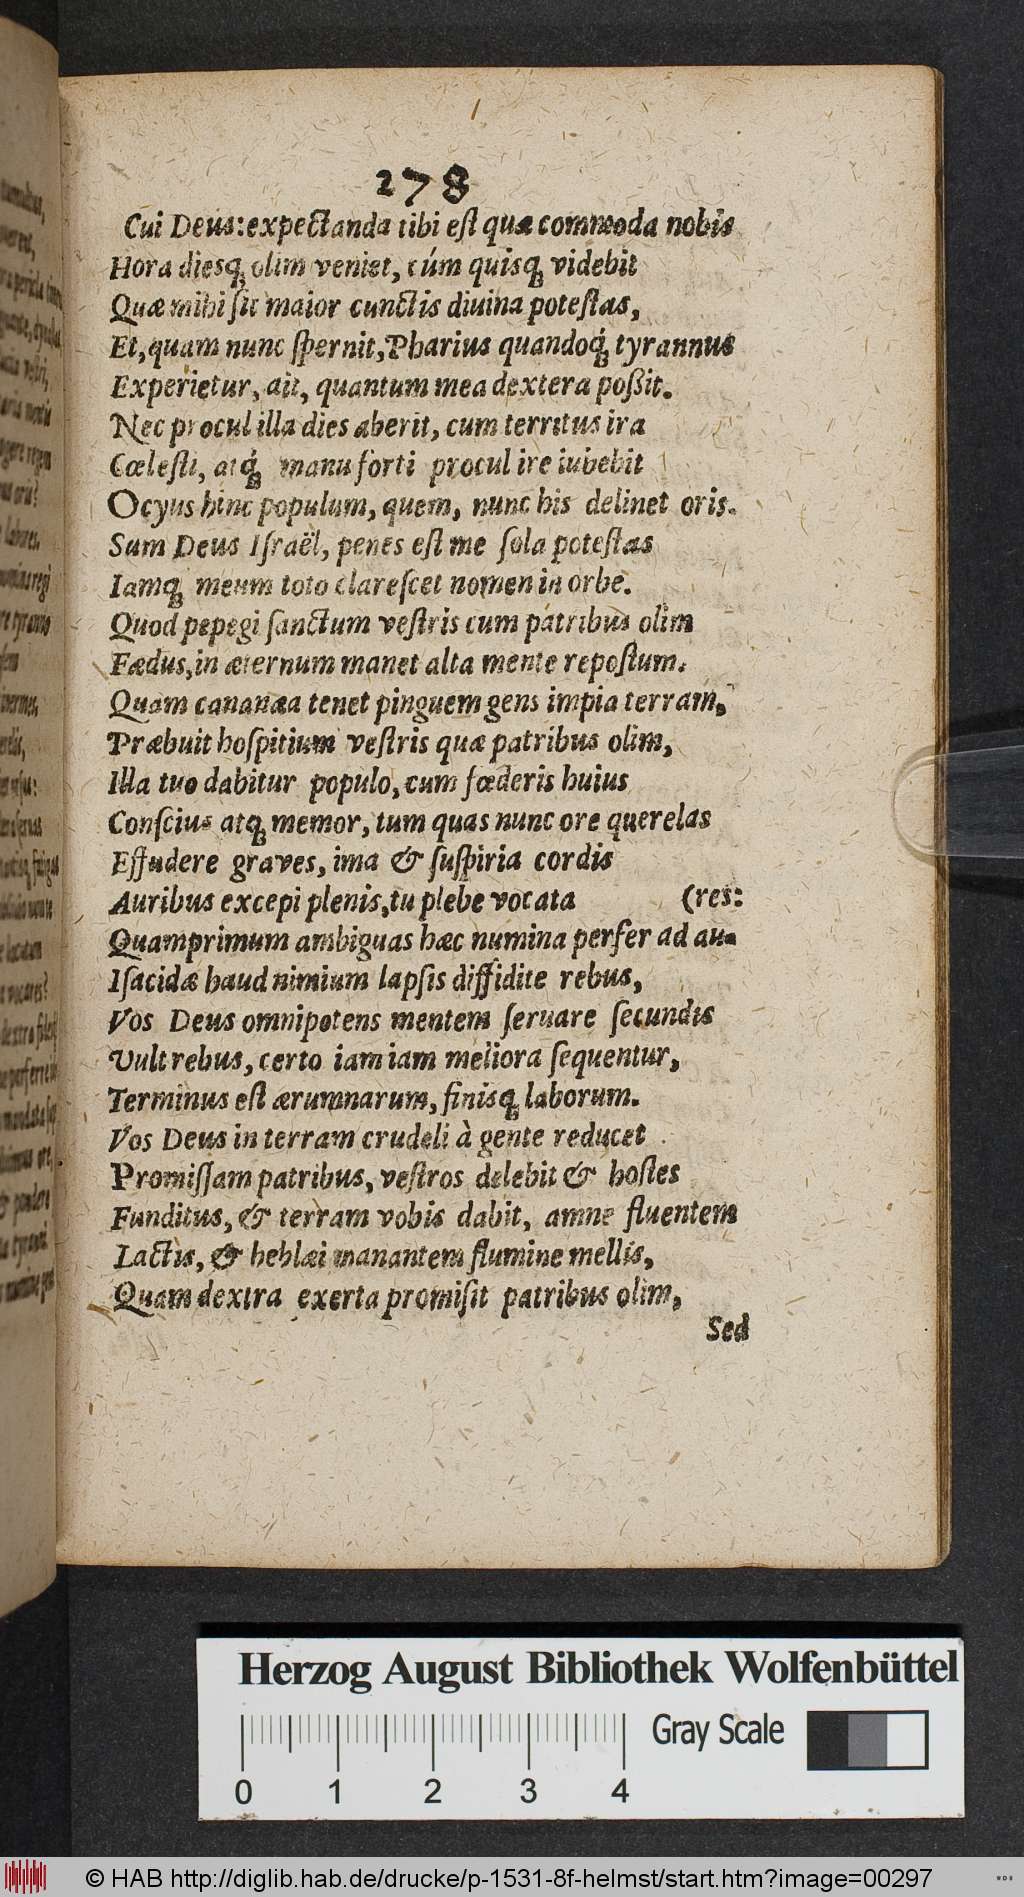 278
Cui Deus: expectanda tibi eſt quæ commoda nobis
Hora diesq́; olim veniet, cúm quisq́; videbit
Quæ mihi ſit maior cunctis diuina poteſtas,
Et, quam nunc ſpernit, Pharius quandoq́; tyrannus
Experietur, ait, quantum mea dextera poßit.
Nec procul illa dies aberit, cum territus ira
Cœleſti, atq́; manu forti procul ire iubebit
Ocyus hinc populum, quem, nunc his delinet oris.
Sum Deus Iſraël, penes eſt me ſola poteſtas
Iamq́; meum toto clareſcet nomen in orbe.
Quod pepegi ſanctum veſtris cum patribus olim
Fædus, in æternum manet alta mente repoſtum.
Quam cananæa tenet pinguem gens impia terram,
Præbuit hoſpitium veſtris quæ patribus olim,
Illa tuo dabitur populo, cum fœderis huius
Conſcius atq́; memor, tum quas nunc ore querelas
Effudere graves, ima & ſuſpiria cordis
Auribus excepi plenis, tu plebe vocata (res:
Quamprimum ambiguas hæc numina perfer ad au-
Iſacidæ haud nimium lapſis diffidite rebus,
Vos Deus omnipotens mentem ſeruare ſecundis
Vult rebus, certo iam iam meliora ſequentur,
Terminus eſt ærumnarum, finisq́; laborum.
Vos Deus in terram crudeli à gente reducet
Promiſſam patribus, veſtros delebit & hoſtes
Funditus, & terram vobis dabit, amne fluentem
Lactis, & heblæi manantem flumine mellis,
Quam dextra exerta promiſit patribus olim,
Sed
Herzog August Bibliothek Wolfenbüttel
Gray Scale
0 1 2 3 4
© HAB http://diglib.hab.de/drucke/p-1531-8f-helmst/start.htm?image=00297